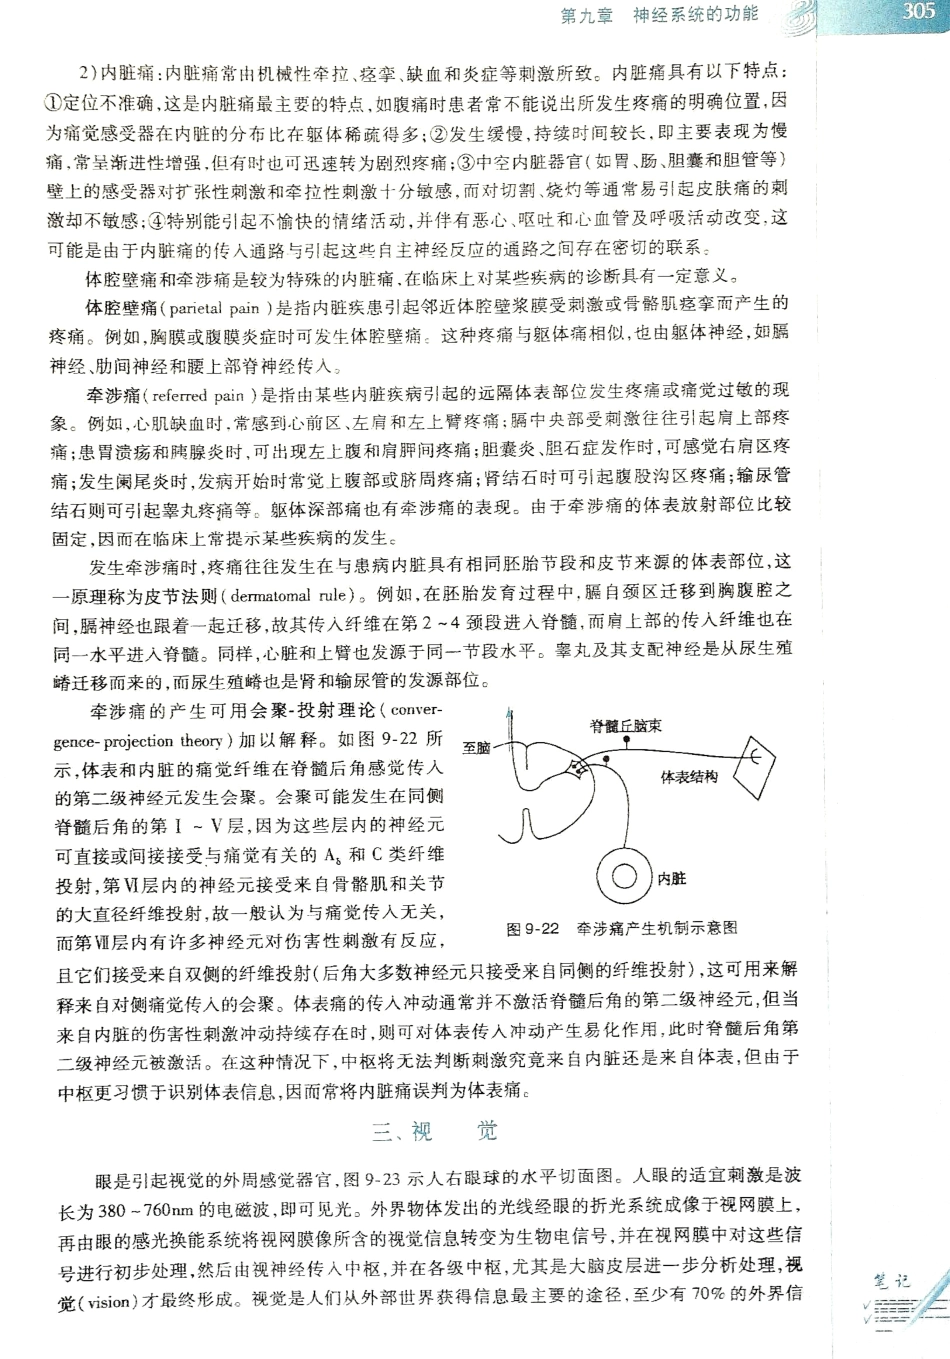 第九章 神经系统的功能 305
2)内脏痛:内脏痛常由机械性牵拉、痉挛、缺血和炎症等刺激所致。内脏痛具有以下特点:
①定位不准确,这是内脏痛最主要的特点,如腹痛时患者常不能说出所发生疼痛的明确位置,因
为痛觉感受器在内脏的分布比在躯体稀疏得多;②发生缓慢,持续时间较长,即主要表现为慢
痛,常呈渐进性增强,但有时也可迅速转为剧烈疼痛;③中空内脏器官(如胃、肠、胆囊和胆管等)
壁上的感受器对扩张性刺激和牵拉性刺激十分敏感,而对切割、烧灼等通常易引起皮肤痛的刺
激却不敏感;④特别能引起不愉快的情绪活动,并伴有恶心、呕吐和心血管及呼吸活动改变,这
可能是由于内脏痛的传入通路与引起这些自主神经反应的通路之间存在密切的联系。
体腔壁痛和牵涉痛是较为特殊的内脏痛,在临床上对某些疾病的诊断具有一定意义。
体腔壁痛(parietal pain)是指内脏疾患引起邻近体腔壁浆膜受刺激或骨骼肌痉挛而产生的
疼痛。例如,胸膜或腹膜炎症时可发生体腔壁痛。这种疼痛与躯体痛相似,也由躯体神经,如膈
神经、肋间神经和腰上部脊神经传入。
牵涉痛(referred pain)是指由某些内脏疾病引起的远隔体表部位发生疼痛或痛觉过敏的现
象。例如,心肌缺血时,常感到心前区、左肩和左上臂疼痛;膈中央部受刺激往往引起肩上部疼
痛;患胃溃疡和胰腺炎时,可出现左上腹和肩胛间疼痛;胆囊炎、胆石症发作时,可感觉右肩区疼
痛;发生阑尾炎时,发病开始时常觉上腹部或脐周疼痛;肾结石时可引起腹股沟区疼痛;输尿管
结石则可引起睾丸疼痛等。躯体深部痛也有牵涉痛的表现。由于牵涉痛的体表放射部位比较
固定,因而在临床上常提示某些疾病的发生。
发生牵涉痛时,疼痛往往发生在与患病内脏具有相同胚胎节段和皮节来源的体表部位,这
一原理称为皮节法则(dermatomal rule)。例如,在胚胎发育过程中,膈自颈区迁移到胸腹腔之
间,膈神经也跟着一起迁移,故其传入纤维在第2~4颈段进入脊髓,而肩上部的传入纤维也在
同一水平进入脊髓。同样,心脏和上臂也发源于同一节段水平。睾丸及其支配神经是从尿生殖
嵴迁移而来的,而尿生殖嵴也是肾和输尿管的发源部位。
牵涉痛的产生可用会聚-投射理论(conver-
gence-projection theory)加以解释。如图9-22所
示,体表和内脏的痛觉纤维在脊髓后角感觉传入
的第二级神经元发生会聚。会聚可能发生在同侧
脊髓后角的第Ⅰ~Ⅴ层,因为这些层内的神经元
可直接或间接接受与痛觉有关的Aδ和C类纤维
投射,第Ⅵ层内的神经元接受来自骨骼肌和关节
的大直径纤维投射,故一般认为与痛觉传入无关,
而第Ⅶ层内有许多神经元对伤害性刺激有反应,
至脑
脊髓丘脑束
体表结构
内脏
图9-22 牵涉痛产生机制示意图
且它们接受来自双侧的纤维投射(后角大多数神经元只接受来自同侧的纤维投射),这可用来解
释来自对侧痛觉传入的会聚。体表痛的传入冲动通常并不激活脊髓后角的第二级神经元,但当
来自内脏的伤害性刺激冲动持续存在时,则可对体表传入冲动产生易化作用,此时脊髓后角第
二级神经元被激活。在这种情况下,中枢将无法判断刺激究竟来自内脏还是来自体表,但由于
中枢更习惯于识别体表信息,因而常将内脏痛误判为体表痛。
三、视 觉
眼是引起视觉的外周感觉器官,图9-23示人右眼球的水平切面图。人眼的适宜刺激是波
长为380~760nm的电磁波,即可见光。外界物体发出的光线经眼的折光系统成像于视网膜上,
再由眼的感光换能系统将视网膜像所含的视觉信息转变为生物电信号,并在视网膜中对这些信
号进行初步处理,然后由视神经传入中枢,并在各级中枢,尤其是大脑皮层进一步分析处理,视
觉(vision)才最终形成。视觉是人们从外部世界获得信息最主要的途径,至少有70%的外界信
笔记